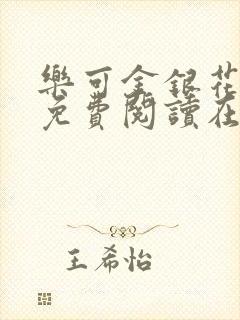 樂可金銀花
免費閱讀在
王希怡